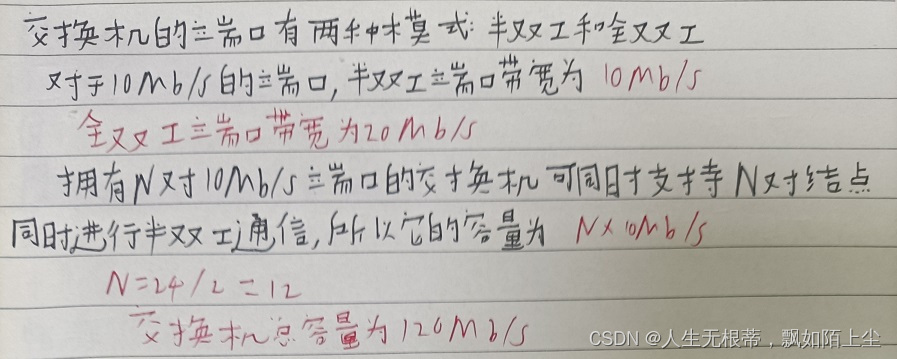 交换机的端口有两种模式:半双工和全双工
对于10Mb/s的端口,半双工端口带宽为 10Mb/s
全双工端口带宽为20Mb/s
拥有N对10Mb/s端口的交换机可同时支持N对结点
同时进行半双工通信,所以它的容量为 N×10Mb/s
N=24/2=12
交换机总容量为120Mb/s
CSDN @人生无根蒂,飘如陌上尘